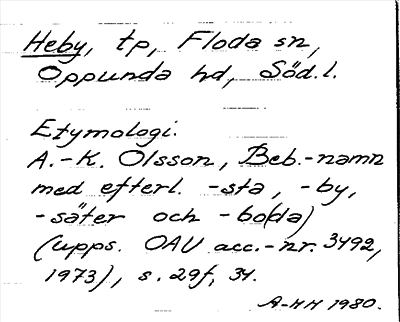 Heby, tp, Floda sn,
Oppunda hd, Söd.l.
Etymologi.
A.-K. Olsson, Beb.-namn
med efterl. -sta, -by,
-säter och -bo(da)
(upps. OAU acc.-nr. 3492,
1973), s. 29f, 34.
A-HH 1980.